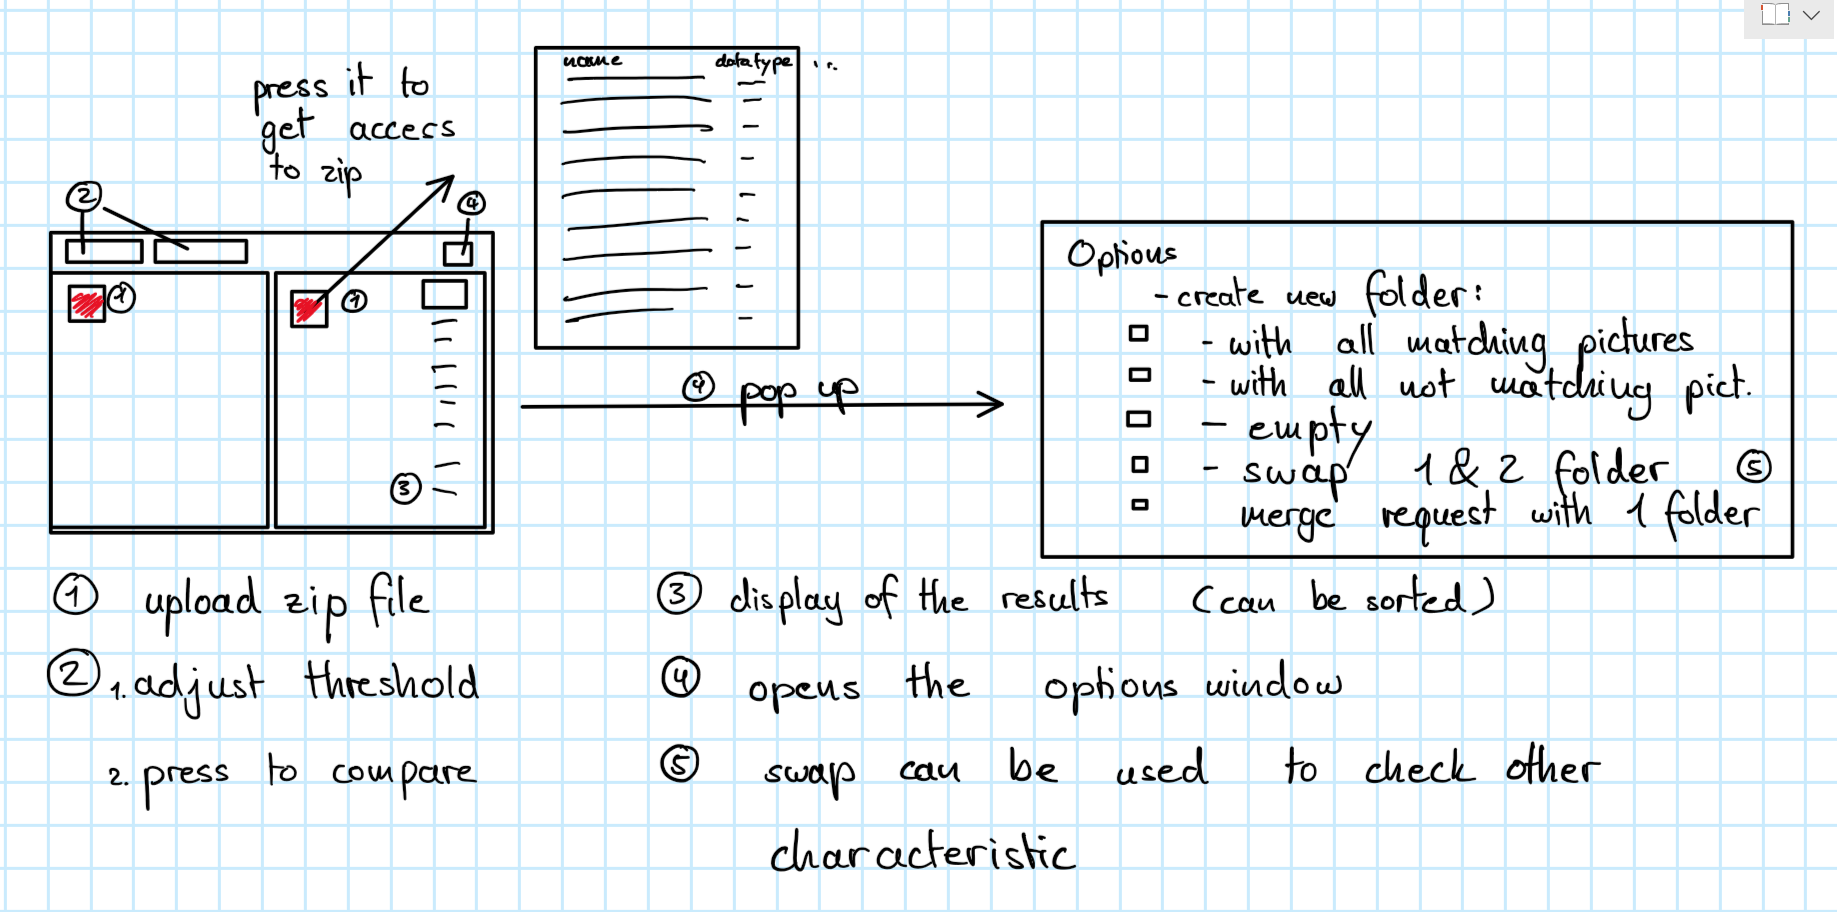 press it to
get access
to zip
name datatype ...
②
④
①
①
③
④ pop up
Options
- create new folder:
- with all matching pictures
- with all not matching pict.
- empty
- swap 1 & 2 folder ⑤
merge request with 1 folder
① upload zip file
② 1. adjust threshold
2. press to compare
③ display of the results (can be sorted)
④ opens the options window
⑤ swap can be used to check other
characteristic